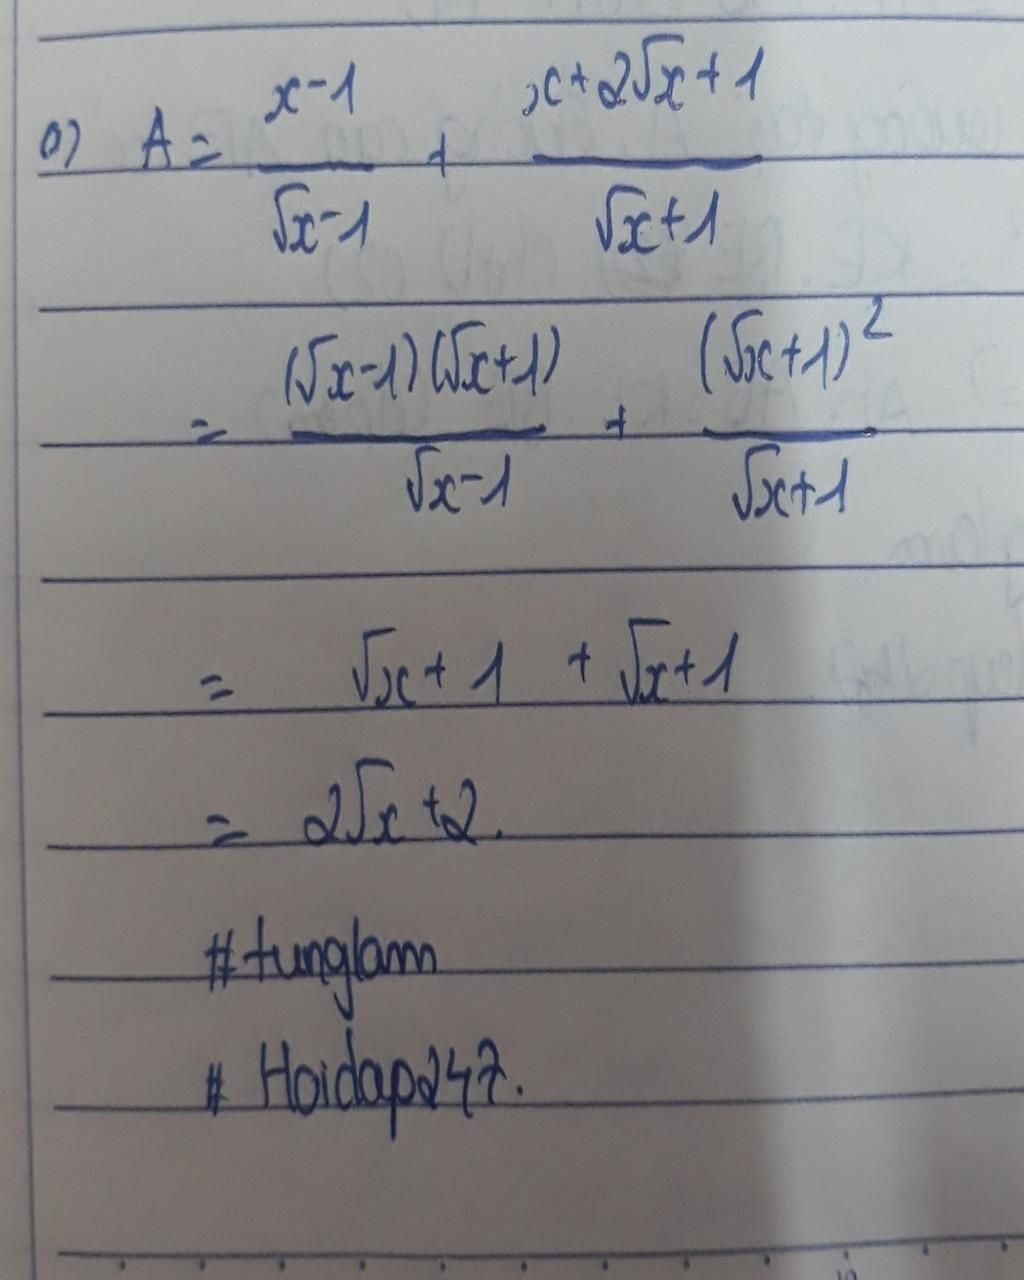 a) A = (x-1)/(√x-1) + (x+2√x+1)/(√x+1)
= ((√x-1)(√x+1))/(√x-1) + (√x+1)²/(√x+1)
= √x+1 + √x+1
= 2√x+2.
#tunglam
# Hoidap247.